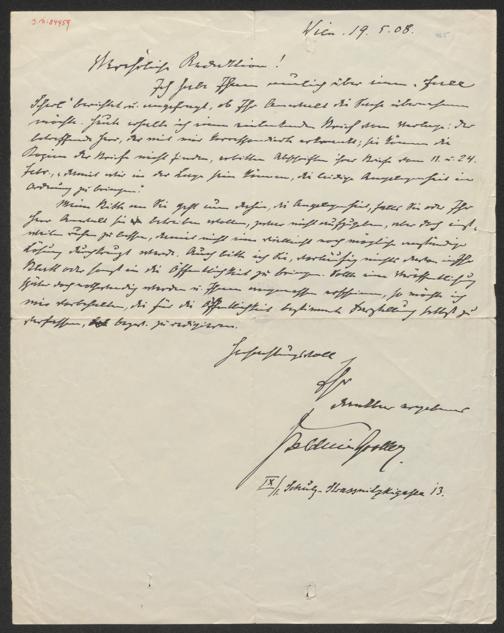 I.N. 84959
Wien. 19. 5. 08.
Verehrliche Redaktion!
Ich habe Ihnen neulich über einen „Fall
Scherl“ berichtet u. angefragt, ob Ihr Anwalt die Sache übernehmen
möchte. Heute erhalte ich einen Brief vom Verlage: der
betreffende Herr, der mit mir korrespondierte erkrankt; sie können die
Kopien der Briefe nicht finden, erbitten Abschriften ihrer Briefe vom 11. u. 24.
Febr., „damit wir in der Lage sein können, die leidige Angelegenheit in
Ordnung zu bringen.“
Meine Bitte an Sie geht nun dahin, die Angelegenheit, falls Sie oder Ihr
Herr Anwalt sie betreiben wollen, zwar nicht aufzugeben, aber doch einst-
weilen ruhen zu lassen, damit nicht eine vielleicht noch mögliche
Lösung werde. Auch bitte ich Sie, vorläufig nichts davon in Ihr
Blatt oder sonst in die Öffentlichkeit zu bringen. Sollte eine Veröffentlichung
später doch notwendig werden u. Ihnen angemessen erscheinen, so möchte ich
mir vorbehalten, die für die Öffentlichkeit bestimmte Darstellung selbst zu
verfassen, bezw. zu redigieren.
Hochachtungsvoll
Ihr
dankbar ergebener
IX/1 Schulz-Strassnitzkigasse 13.